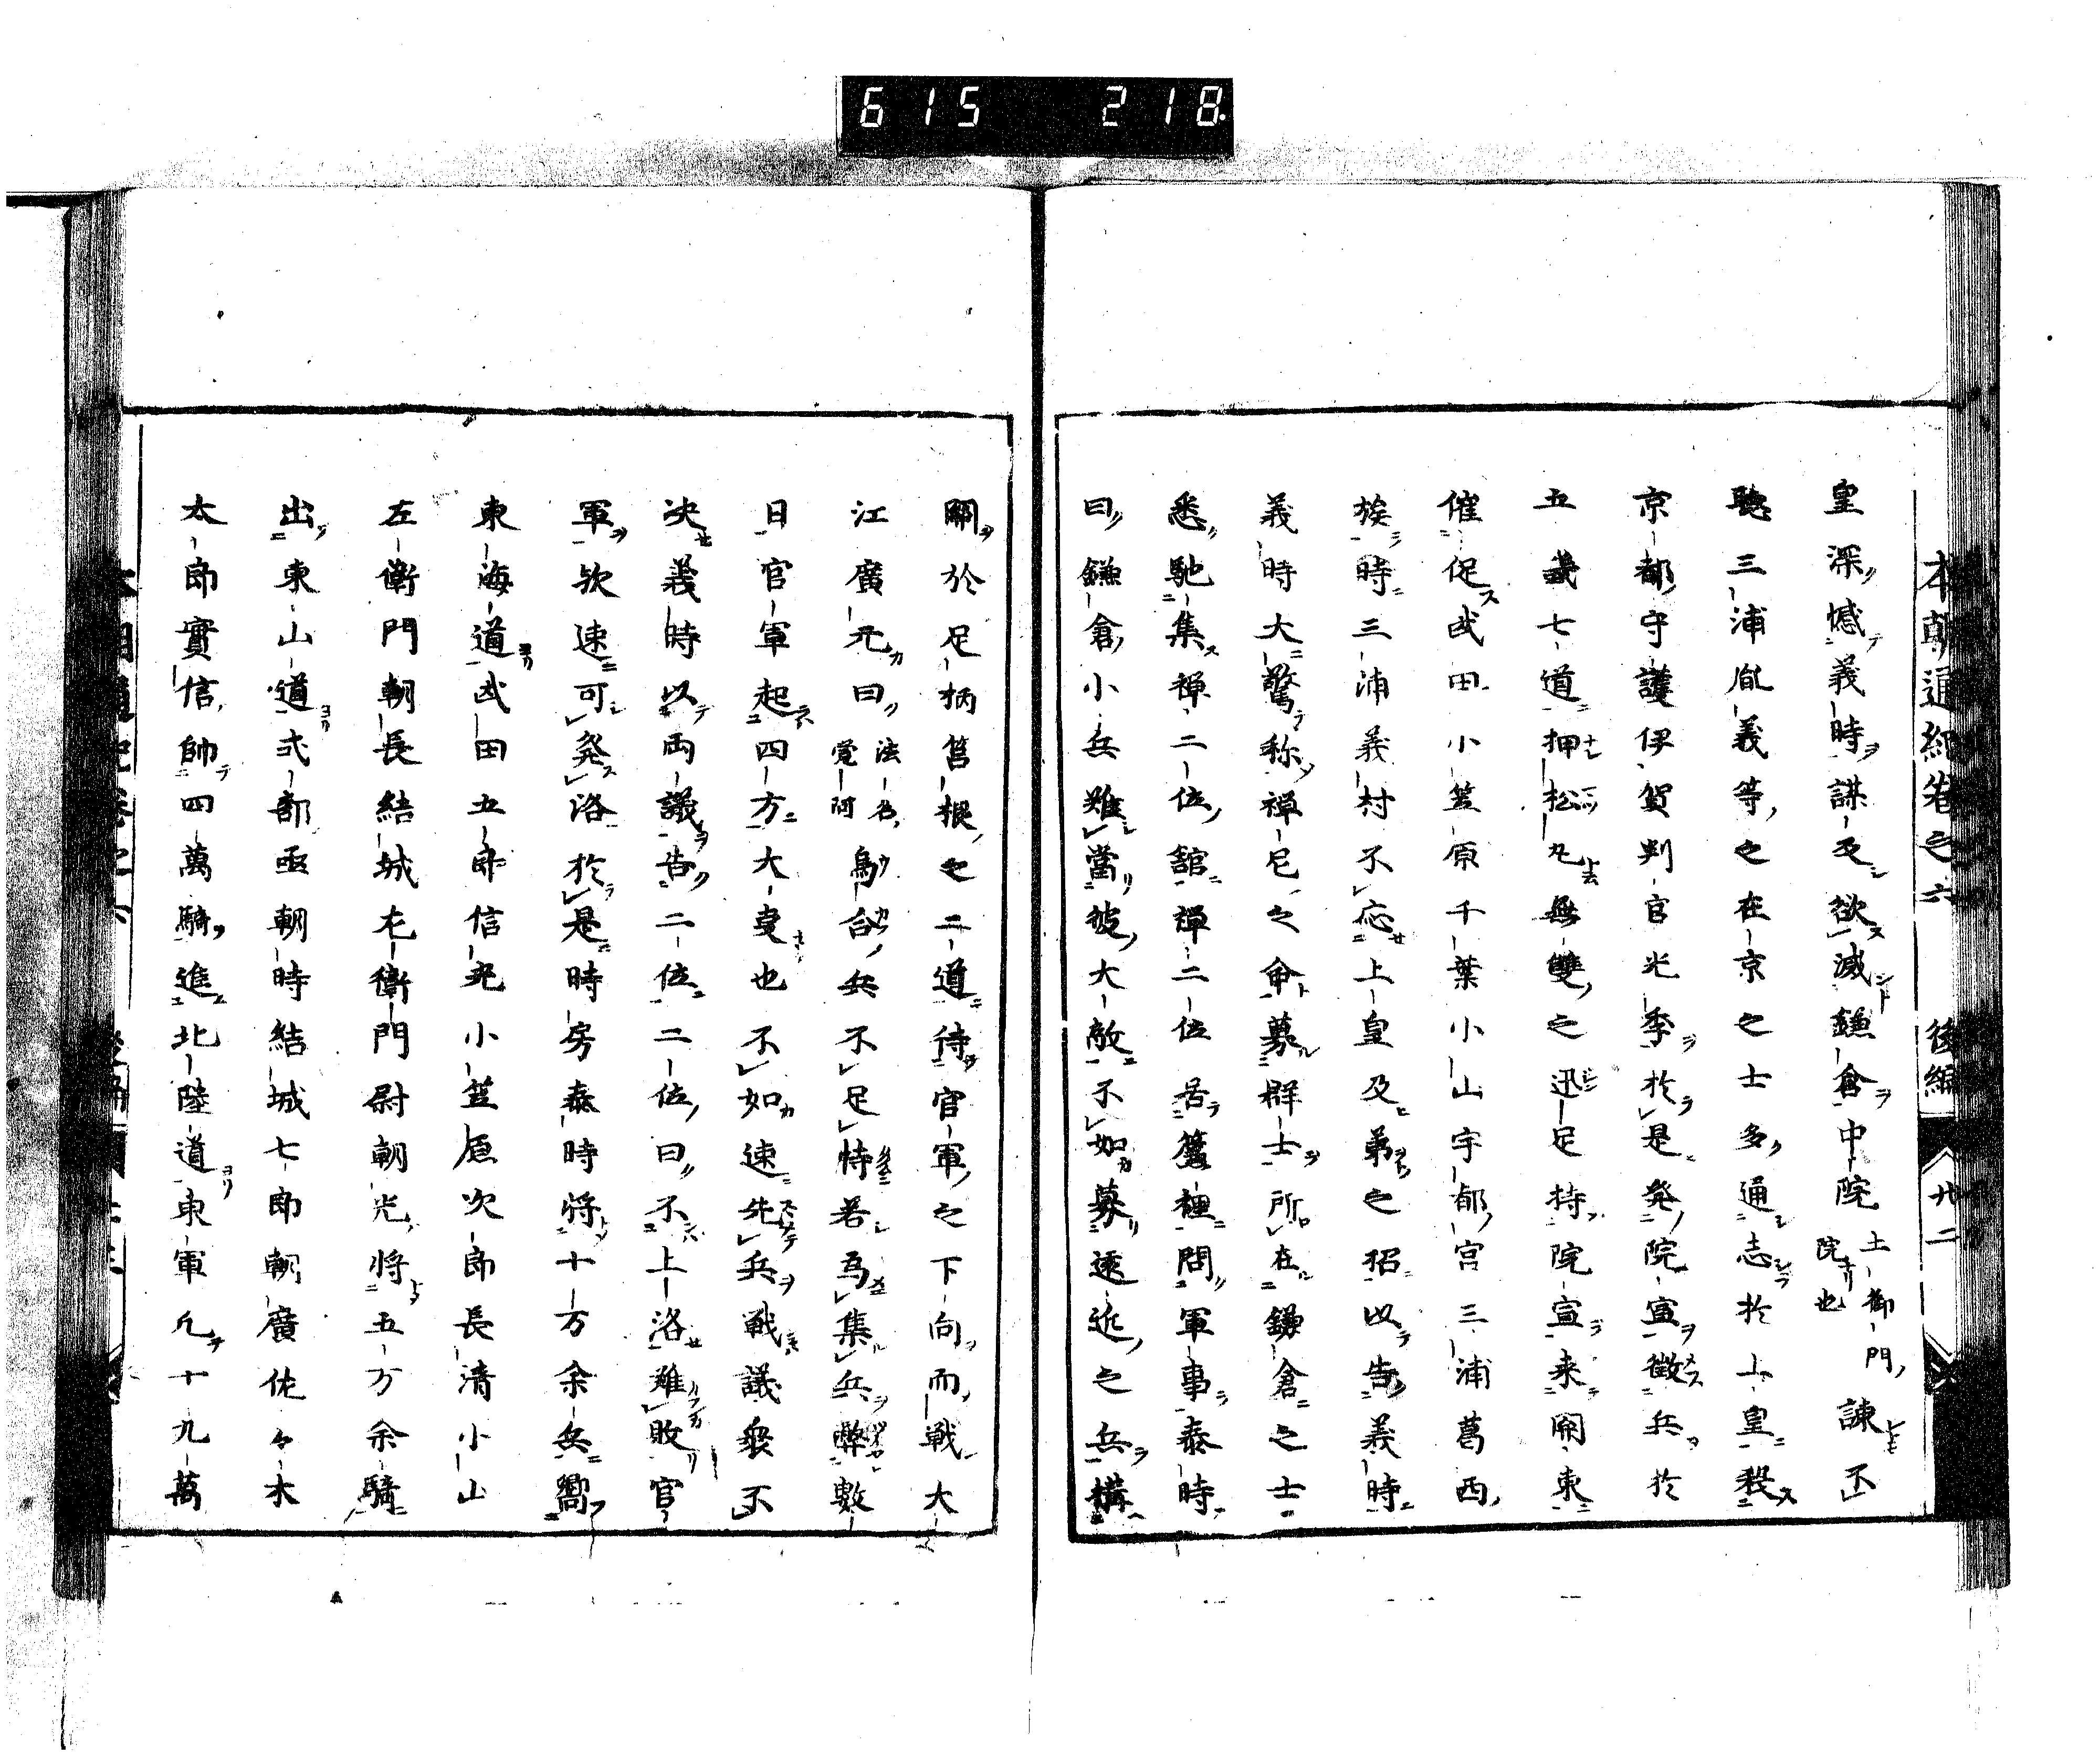 615 218
本朝通紀巻之六 後編 廿二
皇深憾義時謀反欲滅鎌倉中院土御門院也諫不
聴三浦胤義等之在京之士多通志於上皇殺
京都守護伊賀判官光季於是発院宣徴兵於
五畿七道押松丸無雙之迅足持院宣来関東
催促武田小笠原千葉小山宇都宮三浦葛西
族時三浦義村不応上皇及弟之招以告義時
義時大驚称禅尼之命募群士所在鎌倉之士
悉馳集禅二位舘禅二位居簾裡問軍事泰時
曰鎌倉小兵難當彼大敵不如募遠近之兵構
關於足柄筥根之二道待官軍之下向而戦大
江廣元曰法名覚阿鳥合兵不足恃若爲集兵弊數
日官軍起四方大变也不如速先兵戦議衆不
决義時以両議告二位二位曰不上洛難敗官
軍欤速可発洛於是時房泰時将十万余兵嚮
東海道武田五郎信光小笠原次郎長清小山
左衛門朝長結城左衛門尉朝光将五万余騎
出東山道式部亟朝時結城七郎朝廣佐々木
太郎實信帥四萬騎進北陸道東軍凢十九萬